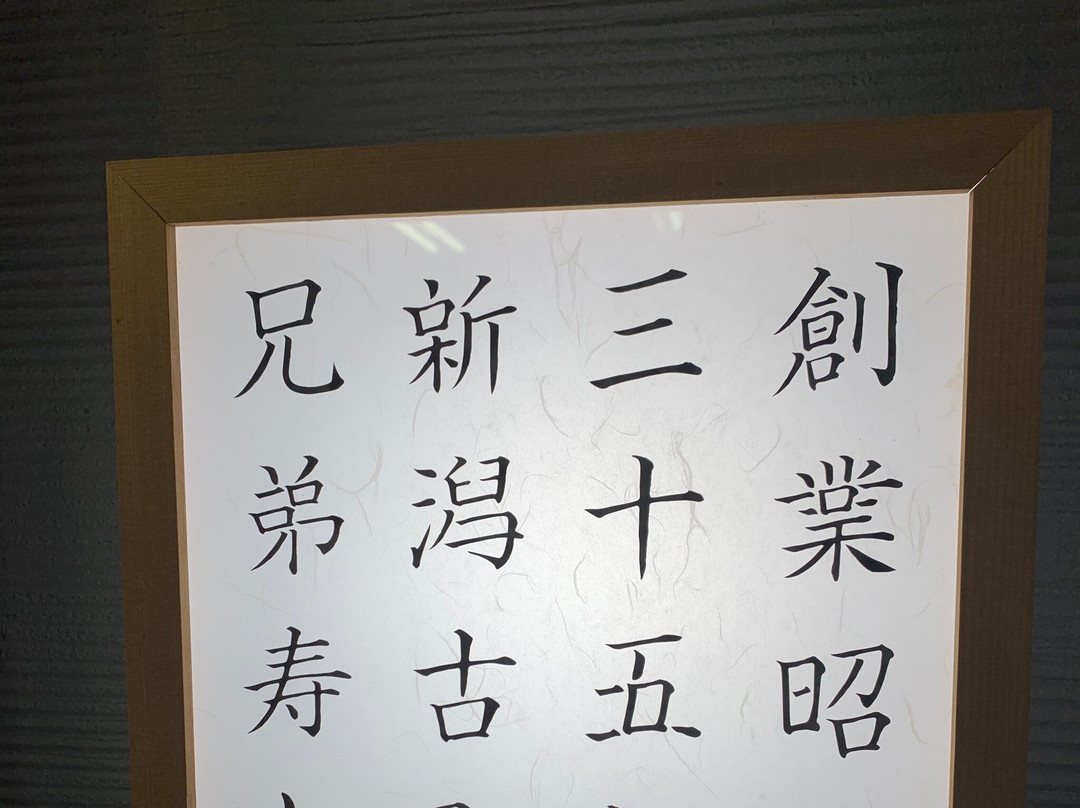 創業昭
三十五
新潟古
兄弟寿